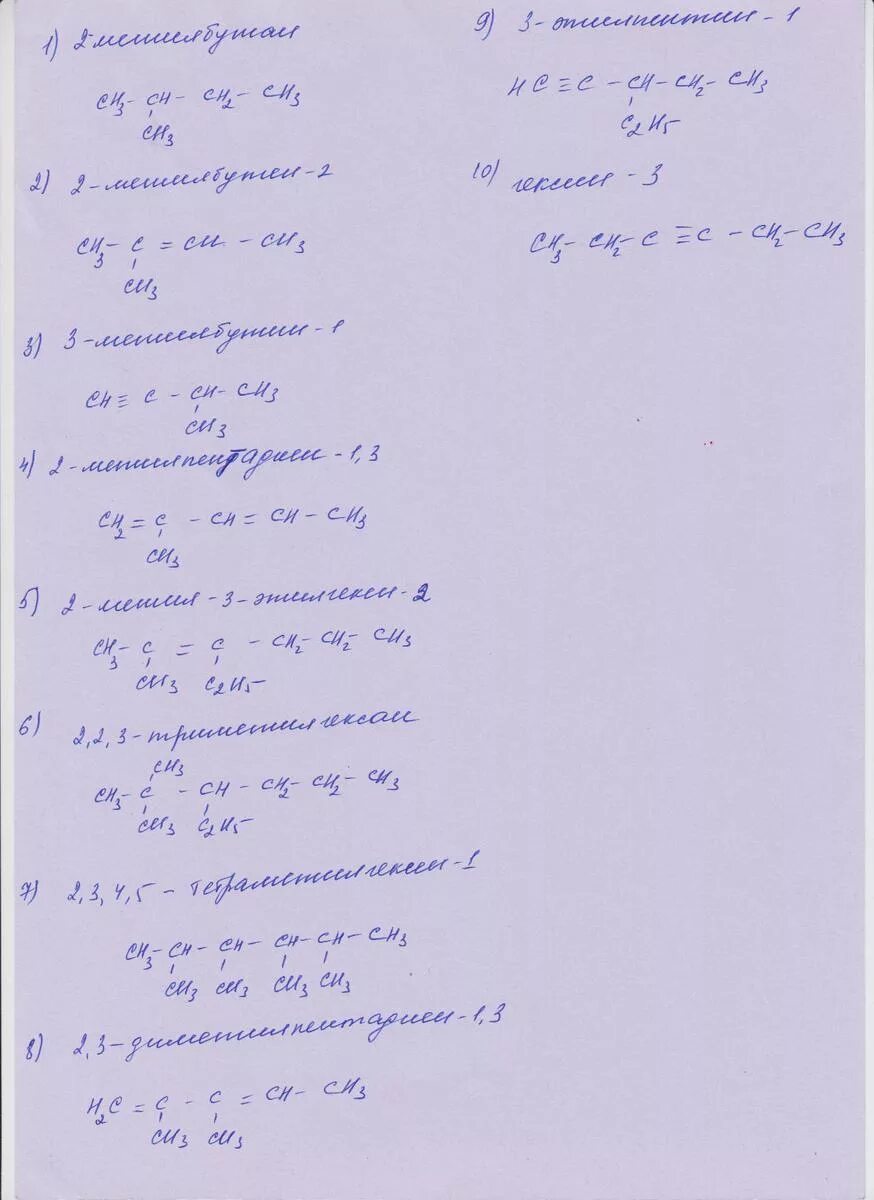 1) 2-метилбутан
CH3 - CH - CH2 - CH3
CH3
2) 2-метилбутен-2
CH3 - C = CH - CH3
CH3
3) 3-метилбутин-1
CH ≡ C - CH - CH3
CH3
4) 2-метилпентадиен-1,3
CH2 = C - CH = CH - CH3
CH3
5) 2-метил-3-этилгексен-2
CH3 - C = C - CH2 - CH2 - CH3
CH3 C2H5
6) 2,2,3-триметилгексан
CH3
CH3 - C - CH - CH2 - CH2 - CH3
CH3 C2H5
7) 2,3,4,5-тетраметилгексин-1
CH3 - CH - CH - CH - CH - CH3
CH3 CH3 CH3 CH3
8) 2,3-диметилпентадиен-1,3
H2C = C - C = CH - CH3
CH3 CH3
9) 3-этилпентин-1
HC ≡ C - CH - CH2 - CH3
C2H5
10) гексин-3
CH3 - CH2 - C ≡ C - CH2 - CH3